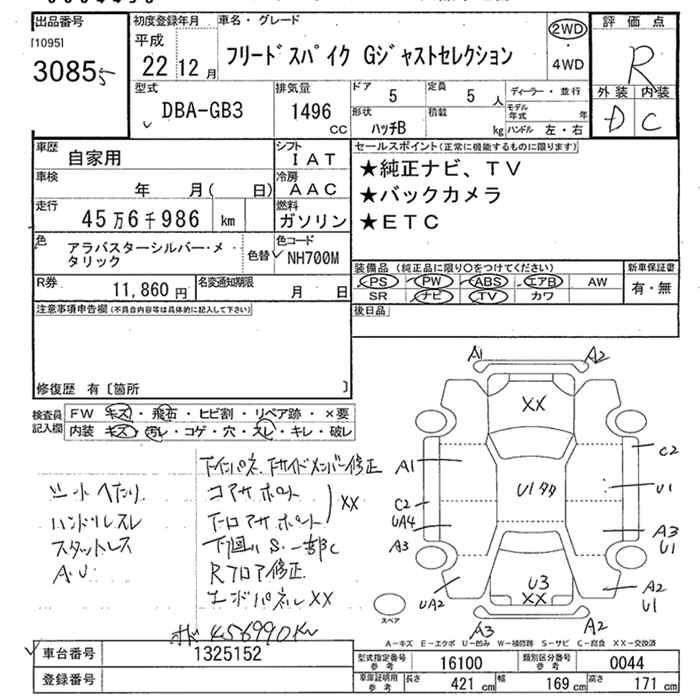 出品番号
[1095]
3085 5
初度登録年月
平成
22 12 月
車名・グレード
フリードスパイク Gジャストセレクション
2WD
・
4WD
評価点
R
外装 内装
D C
型式
DBA-GB3
排気量
1496
CC
ドア 5
定員 5 人
形状 ハッチB
積載 kg
ディーラー・並行
モデル年式 年
ハンドル 左・右
車歴 自家用
車検 年 月( 日)
走行 45万6千986 km
色 アラバスターシルバー・メタリック
色替
シフト IAT
冷房 AAC
燃料 ガソリン
色コード NH700M
R券 11,860円
名変通知期限 月 日
セールスポイント(正常に機能するものに限ります)
★純正ナビ、TV
★バックカメラ
★ETC
装備品(純正品に限り○をつけてください)
PS PW ABS エアB AW
SR ナビ TV カワ
新車保証書
有・無
後日品
注意事項申告欄(不具合内容等は具体的に記入して下さい)
修復歴 有〔箇所 〕
検査員記入欄
FW キズ・飛石・ヒビ割・リペア跡・×要
内装 キズ・汚レ・コゲ・穴・スレ・キレ・破レ
シートへたり
ハンドルスレ
スタットレス
A.U
下インパネ、下サイドメンバー修正
コアサポート
下コアサポート
XX
下回りS.一部C
Rフロア修正
エンドパネルXX
456990Km
A1 A2
XX
A1
C2
U1
C2
UA4
A3
A3
U1
U3
XX
UA2
A2
U1
A3 A2
スペア
A-キズ E-エクボ U-凹み W-補修跡 S-サビ C-腐食 XX-交換済
車台番号 1325152
登録番号
型式指定番号 参考 16100
類別区分番号 参考 0044
車庫証明用 参考 長さ 421 cm 幅 169 cm 高さ 171 cm